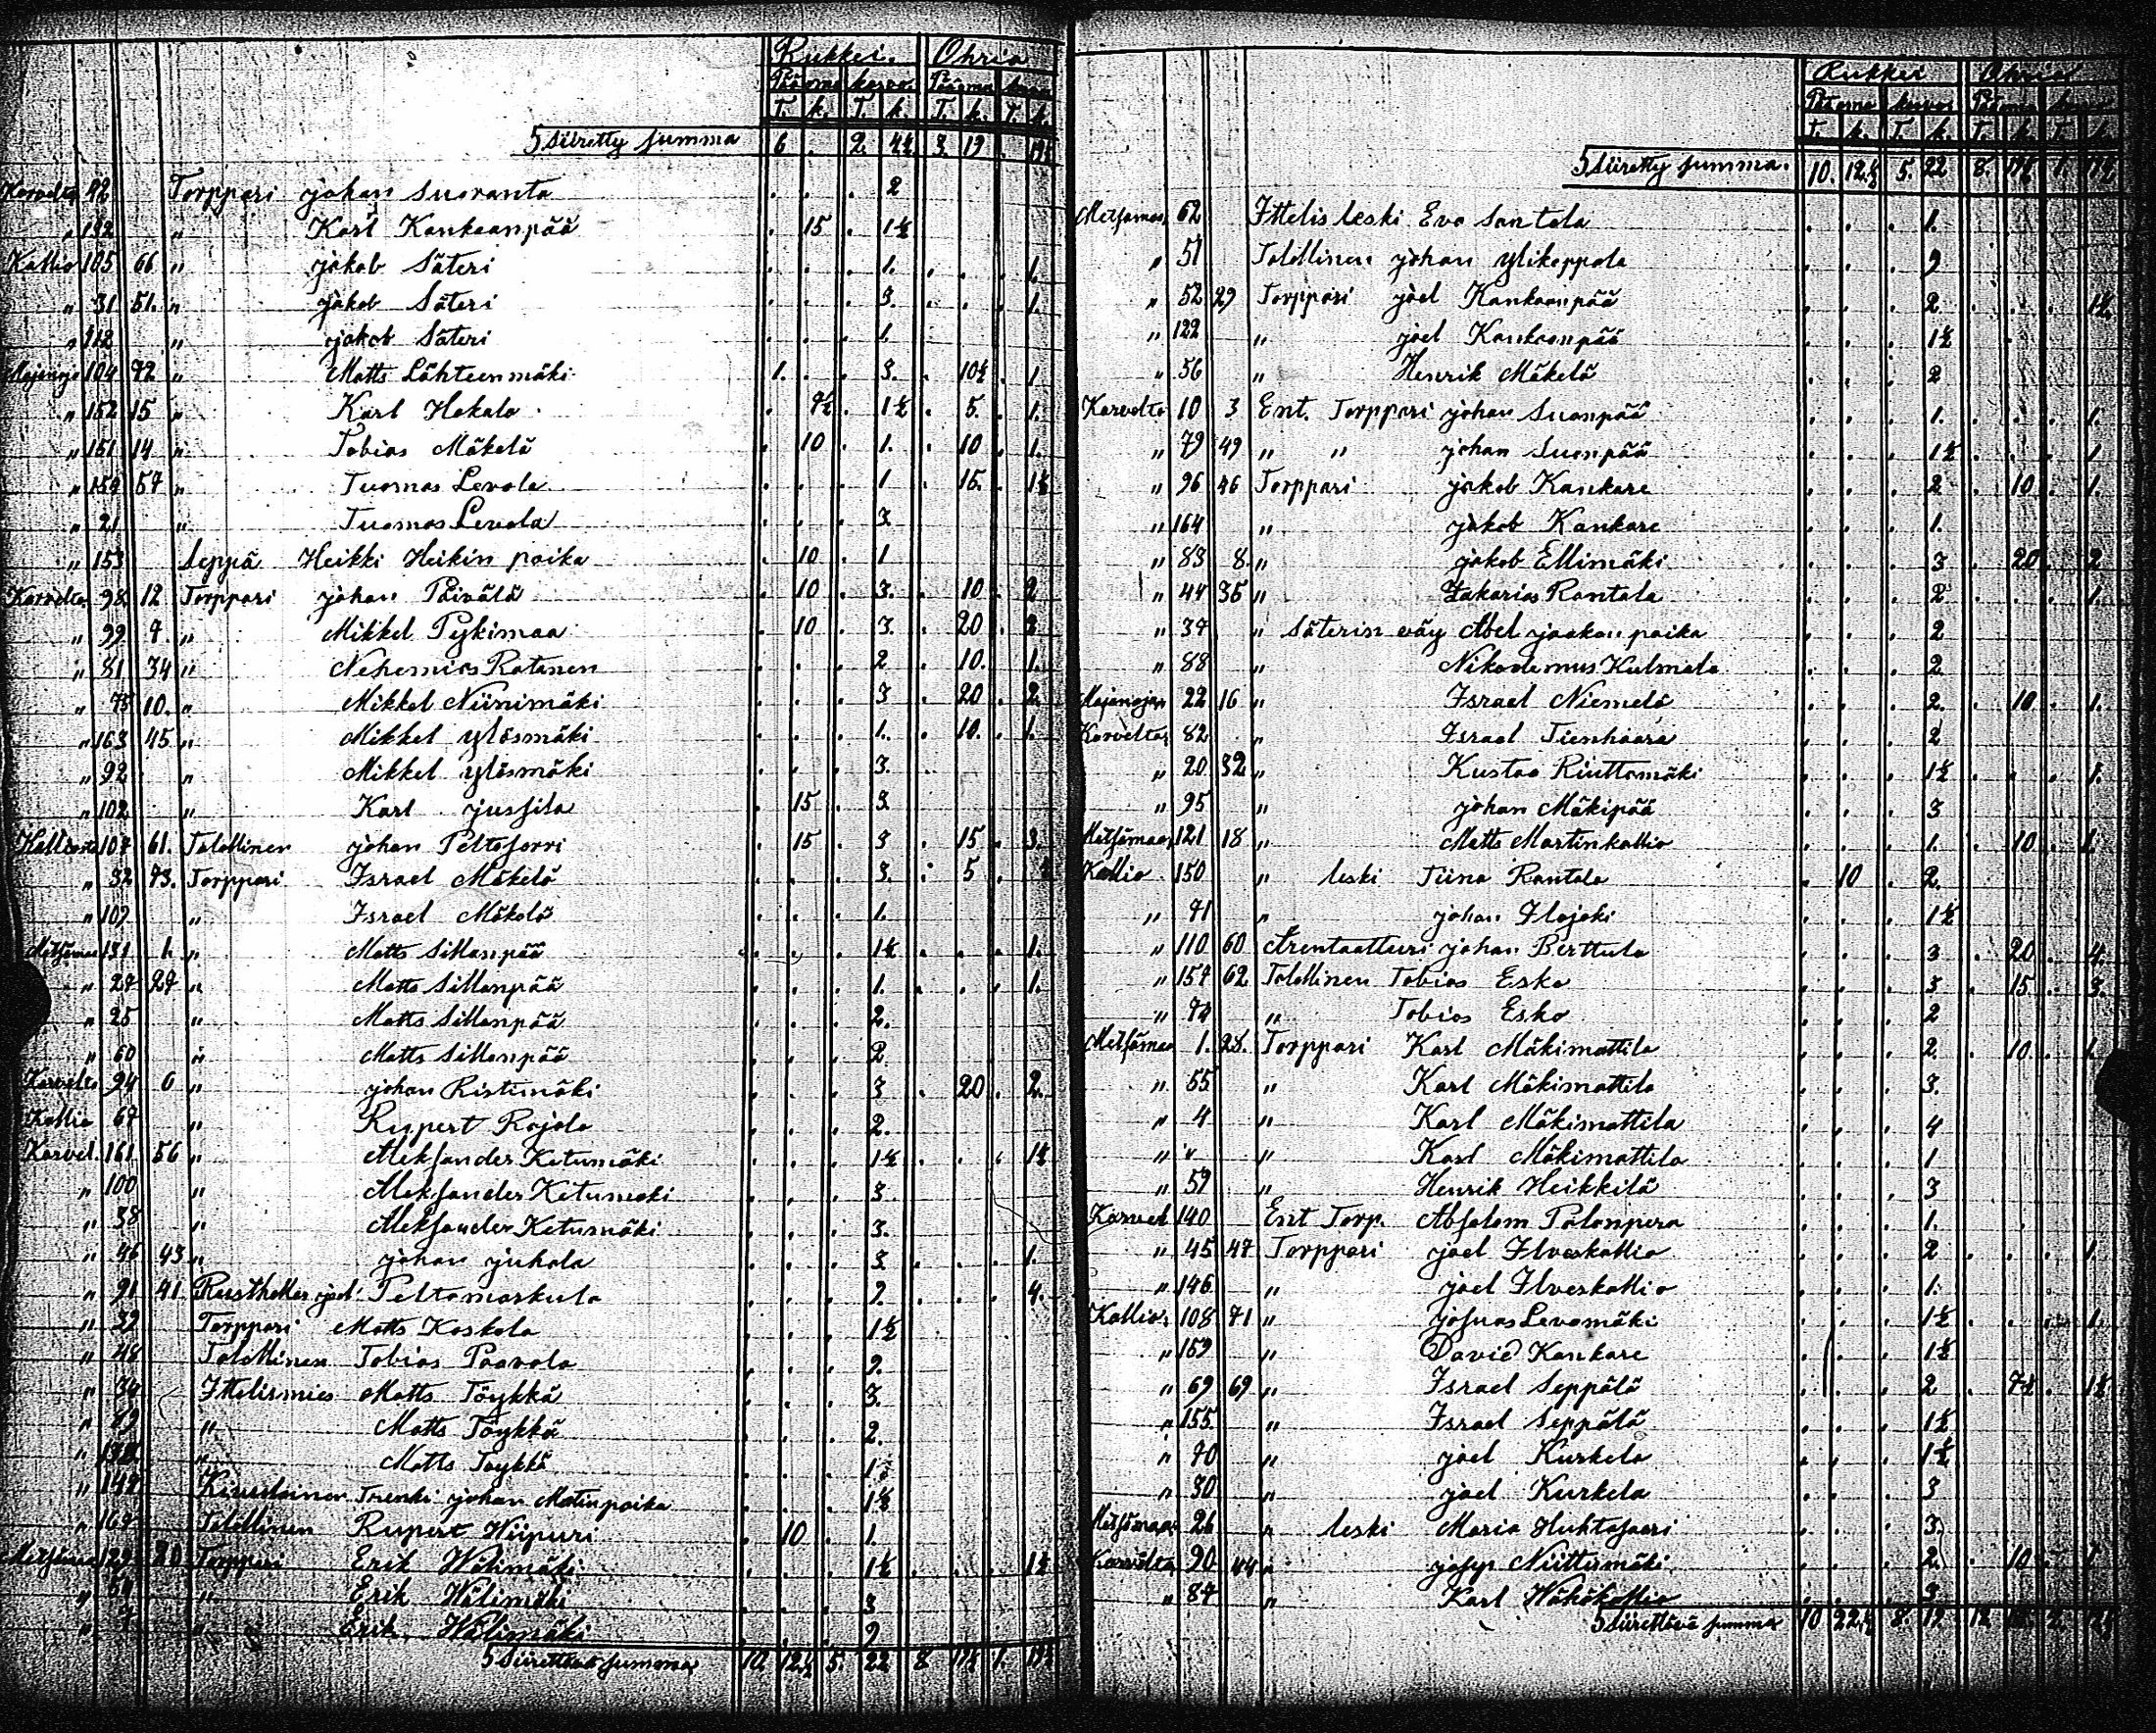 Rukkei. Ohria
Pääoma kasvo. Pääoma
T. k. T. k. T. k. T. k.
Siiretty summa 6 . 2. 3. 19
42 Torppari johan Suoranta . . . 2
" 132 " Karl Kankaanpää . 15 . 1½
Kallio 105 66 " jakob Säteri . . . 1. . . . 1.
" 31 51. " jakob Säteri . . . 3. . . . 1.
" 112 " jakob Säteri . . . 1.
104 72 " Matts Lähteenmäki 1. . . 3. . 10½ . 1
" 152 15 " Karl Hakala . 7½ . 1½ . 5. . 1.
" 151 14 " Tobias Mäkelä . 10 . 1. . 10 . 1.
" 159 57 " Tuomas Levola . . . 1 . 15. . 1½
" 21 " Tuomas Levola . . . 3
" 153 Seppä Heikki Heikin poika . 10 . 1
98 12 Torppari johan Päivälä . 10 . 3. . 10 . 2
" 99 7. " Mikkel Pykimaa . 10 . 3. . 20 . 3
" 81 34 " Nehemias Ratanen . . . 2 . 10. . 1.
" 75 10. " Mikkel Niinimäki . . . 3 . 20 . 2.
" 163 45 " Mikkel ylösmäki . . . 1. . 10. . 1.
" 92 " Mikkel ylösmäki . . . 3.
" 102 " Karl jussila . 15 . 3.
107 61. Talollinen johan Peltosorri . 15 . 3 . 15 . 3.
" 32 73. Torppari Israel Mäkelä . . . 3. . 5 .
" 109 " Israel Mäkelä . . . 1.
131 1. " Matts Sillanpää . . . 1½ . . . 1.
" 27 27 " Matts Sillanpää . . . 1. . . . 1.
" 25 " Matts Sillanpää . . . 2.
" 60 " Matts Sillanpää . . . 2
94 6 " johan Ristimäki . . . 3 . 20 . 2.
Kallio 67 " Rupert Rajala . . . 2.
Karvel. 161 56 " Aleksander Ketumäki . . . 1½ . . . 1½
" 100 " Aleksander Ketumäki . . . 3.
" 38 " Aleksander Ketumäki . . . 3.
" 46 43 " johan juhala . . . 3 . . . 1.
" 91 41 Rusthollar joel Peltomarkula . . . 2. . . . 4.
" 39 Torppari Matts Koskola . . . 1½
" 48 Talollinen Tobias Paavola . . . 2.
" 34 Ittelismies Matts Töykkä . . . 3.
" 49 " Matts Töykkä . . . 2.
" " Matts Töykkä . . . 1
" 149 Trenki johan Matinpoika . . . 1½
" 162 Talollinen Rupert Wiipuri . 10 . 1.
129 20 Torppari Erik Wälimäki . . . 1½ . . . 1½
" " Erik Wälimäki . . . 3
" " Erik Wälimäki . . . 2
Siirettävä summa 10. 12½ 5. 22 8. 17½ 1.
Rukkei Ohria
Pääoma kasvo Pääoma
T. k. T. k. T. k. T. k.
Siiretty summa. 10. 12½ 5. 22 8. 17½ 1.
Metsämaa 62 Ittelis leski Eva Santala . . . 1.
" 51 Talollinen johan ylikoppola . . . 9
" 52 29 Torppari joel Kankaanpää . . . 2 . . . 1½
" 122 " joel Kankaanpää . . . 1½
" 56 " Henrik Mäkelä . . . 2
Karvelta 10 3 Ent. Torppari johan Suonpää . . . 1. . . . 1.
" 79 49 " " johan Suonpää . . . 1½ . . . 1
" 96 46 Torppari jakob Kankare . . . 2 . 10 . 1.
" 164 " jakob Kankare . . . 1.
" 83 8. " jakob Ellimäki . . . 3 . 20 . 2
" 44 35 " Zakarias Rantala . . . 2 . . . 1.
" 37 " Säterin väy Abel jaakon poika . . . 2
" 88 " Nikodemus Kulmala . . . 2
22 16 " Israel Niemelä . . . 2. . 10 . 1.
Karvelta 82 " Israel Tienhaara . . . 2
" 20 32 " Kustaa Riuttamäki . . . 1½ . . . 1.
" 95 " johan Mäkipää . . . 3
Metsämaa 121 18 " Matts Martinkallio . . . 1. . 10 . 1.
Kallio 150 " leski Tiina Rantala . 10 . 2.
" 71 " johan Ilajoki . . . 1½
" 110 60 Arentaatturi johan Berttula . . . 3 . 20 . 4.
" 157 62 Talollinen Tobias Esko . . . 3. . 15 . 3.
" 74 " Tobias Esko . . . 2
Metsämaa 1. 28. Torppari Karl Mäkimattila . . . 2. . 10 . 1.
" 55 " Karl Mäkimattila . . . 3.
" 4 " Karl Mäkimattila . . . 4
" " " Karl Mäkimattila . . . 1
" 59 " Henrik Heikkilä . . . 3
Karvel 140 Ent Torp. Absalom Palonpera . . . 1.
" 45 47 Torppari joel Ilveskallio . . . 2 . . . 1.
" 146 " joel Ilveskallio . . . 1.
Kallio 108 71 " josuas Levomäki . . . 1½ . . . 1.
" 159 " David Kankare . . . 1½
" 69 69 " Israel Seppälä . . . 2 . 7½ . 1½
" 155 " Israel Seppälä . . . 1½
" 70 " joel Kurkela . . . 1½
" 30 " joel Kurkela . . . 3
Metsämaa 26 " leski Maria Huhtasaari . . . 3.
Karvelta 90 44 " josep Niittumäki . . . 2. . 10 . 1
" 87 " Karl Wähäkallio . . . 3
Siirettävä summa 10 22½ 8. 17. 12